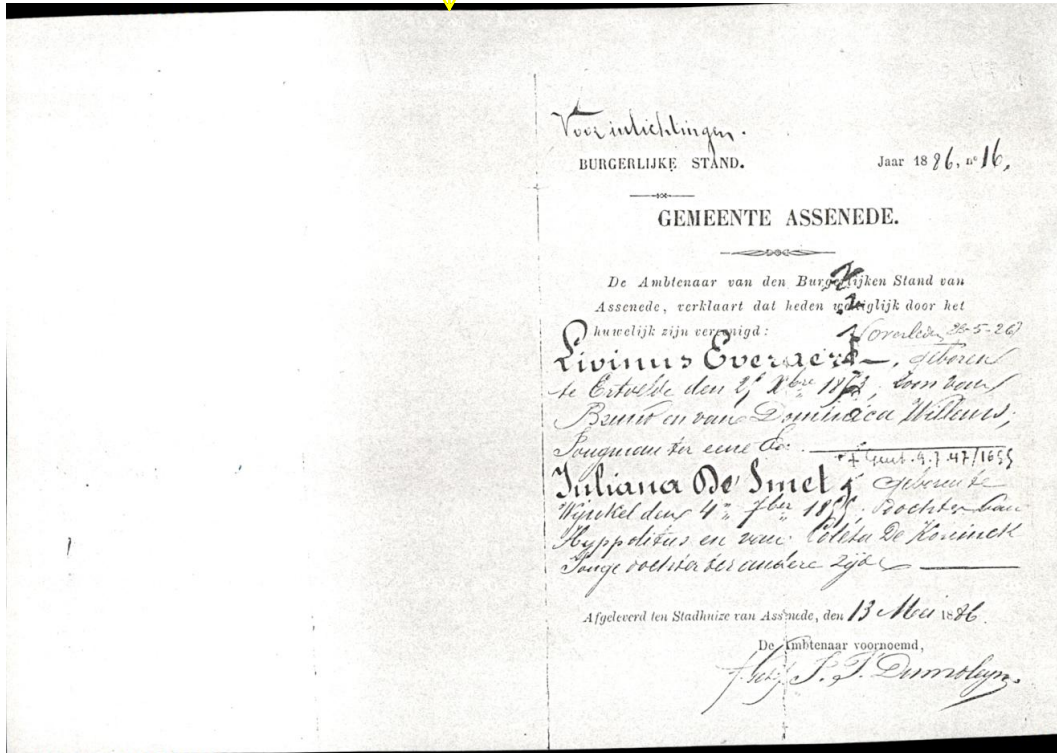 Voor inlichtingen.
BURGERLIJKE STAND. Jaar 1886, nº 16,
GEMEENTE ASSENEDE.
De Ambtenaar van den Burgerlijken Stand van
Assenede, verklaart dat heden wettiglijk door het
huwelijk zijn vereenigd: Overleden 26-5-26
Livinus Everaert, geboren
te Ertvelde den 25 Xbre 1862, zoon van
Bruno en van Dominica Willems,
Jongman ter eene
+ Gent. 9.7.47/1655
Juliana De Smet, geboren te
Wijnkel den 4 7ber 1855, dochter van
Hyppolitus en van Coleta De Koninck
Jonge dochter ter andere zijde
Afgeleverd ten Stadhuize van Assenede, den 13 Mei 1886.
De Ambtenaar voornoemd,
(get.) P. F. Dumoleyn.